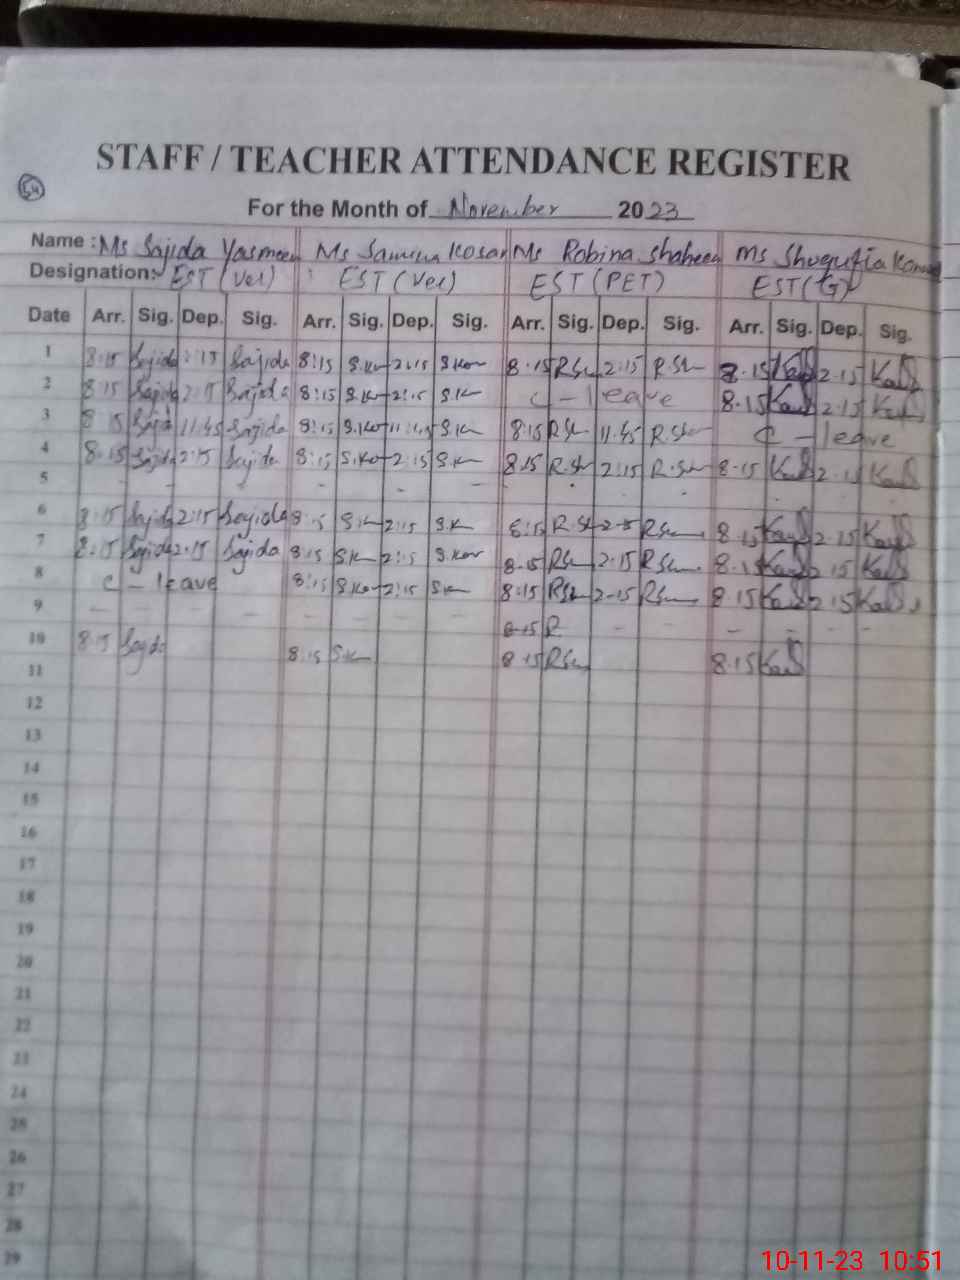 STAFF / TEACHER ATTENDANCE REGISTER
54
For the Month of November 2023
Name : Ms Sajida Yasmeen Ms Samina Kosar Ms Robina Shaheen Ms Shugufta Kanwal
Designation: EST (Ver) EST (Ver) EST (PET) EST (G)
Date Arr. Sig. Dep. Sig. Arr. Sig. Dep. Sig. Arr. Sig. Dep. Sig. Arr. Sig. Dep. Sig.
1 8:15 Sajida 2:15 Sajida 8:15 S.Kor 2:15 S.Kor 8.15 RSh 2:15 R.Sh 8.15 2.15
2 8:15 Sajida 2:15 Sajida 8:15 S.Kr 2:15 S.Kr C - leave 8.15 2.15
3 8 15 Sajida 11.45 Sajida 8:15 S.Kor 11:45 S.K 8:15 R.Sh 11.45 R.Sh C - leave
4 8:15 Sajida 2:15 Sajida 8:15 S.Kor 2:15 S.K 8.15 R.Sh 2:15 R.Sh 8.15 2.15
5 - - - -
6 8:15 Sajida 2:15 Sajida 8:15 S.K 2:15 S.K 8:15 R.Sh 2-15 RSh 8.15 2.15
7 8:15 Sajida 2:15 Sajida 8:15 S.K 2:15 S.Kor 8.15 RSh 2.15 RSh 8.15 2.15
8 C - leave 8:15 S.Kor 2:15 S.K 8:15 RSh 2-15 RSh 8.15 2.15
9 - - - - 8-15 R - - - - - -
10 8:15 Sajida 8:15 S.K 8.15 RSh 8.15
11
12
13
14
15
16
17
18
19
20
21
22
23
24
25
26
27
28
29
10-11-23 10:51